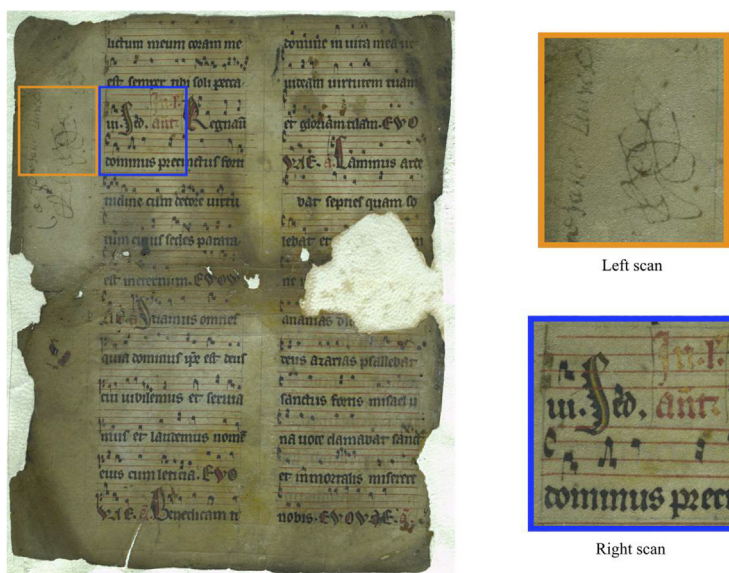 lictum meum coram me
est semper tibi soli pecca
In.l.
ui. Seð. añt. Regnau
dominus precinctus forti
tudine cum decore uirtu
tum cuius sedes parata
est ineternum. EVOV
AE. a omnes
quia dominus ipe est deus
cui iubilemus et seruia
mus et laudemus nom
eius cum leticia. EVO
VAE. a Benedicam ti
domine in uita mea ut
uideam uirtutem tuam
et gloriam tuam. EVO
VAE. a Caminus arde
bat septies quam so
lebat et
ne
ananias
deus azarias psallebat
sanctus fortis misael u
na uoce clamabat sanct
et inmortalis miserere
nobis. EVOVAE. a
Left scan
In.l.
ui. Seð. añt.
dominus preci
Right scan